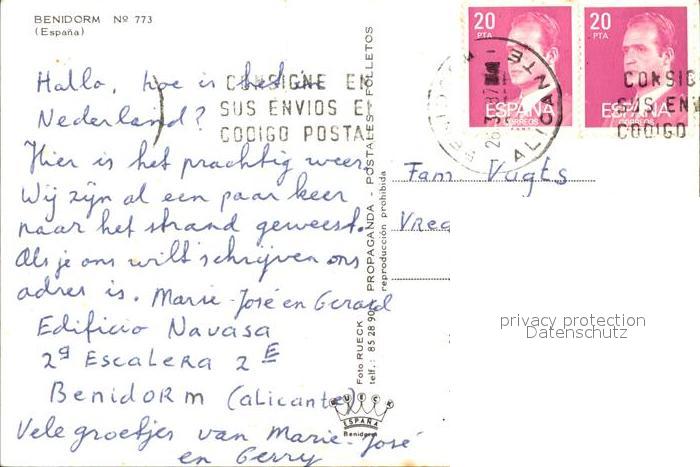 BENIDORM Nº 773
(España)
Hallo, hoe is het in
Nederland?
Hier is het prachtig weer.
Wij zijn al een paar keer
naar het strand geweest.
Als je ons wilt schrijven ons
adres is. Marie-José en Gerard
Edificio Navasa
2ª Escalera 2 E
Benidorm (alicante)
Vele groetjes van Marie-José
en Gerry
CONSIGNE EN
SUS ENVIOS EL
CODIGO POSTAL
Foto RUECK - PROPAGANDA - POSTALES - FOLLETOS
telf.: 85 28 90
reproducción prohibida
RUECK
ESPAÑA
Benidorm
20
PTA
ESPAÑA
CORREOS
20
PTA
ESPAÑA
CORREOS
BENIDORM
ALICANTE
CONSIG
SUS EN
CODIGO
Fam Vugts
Vred
privacy protection
Datenschutz